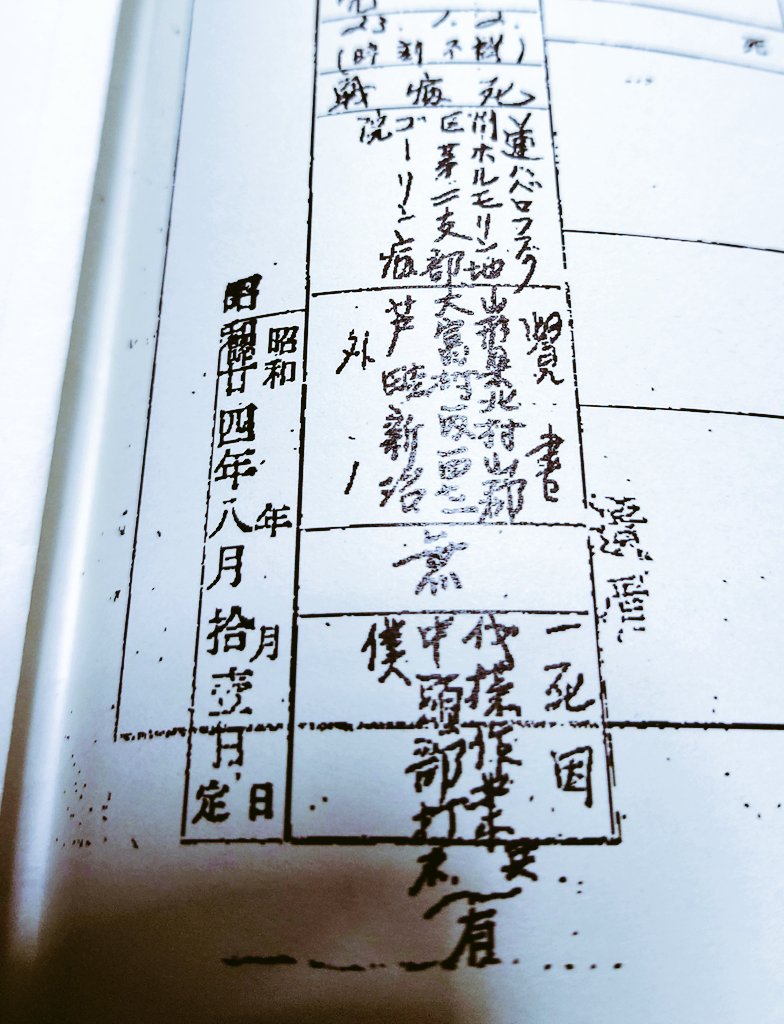 死
23. 1. 2.
(時刻不詳)
戦病死
ソ連ハバロフスク
州ホルモリン地
区第二支部
ゴーリン病
院
書
山形県北村山郡
大富村
新治
外 1
無
一死因
伐採作業
中頭部打
撲
(有
昭和 年 月 日
定
昭和廿四年八月拾壹日